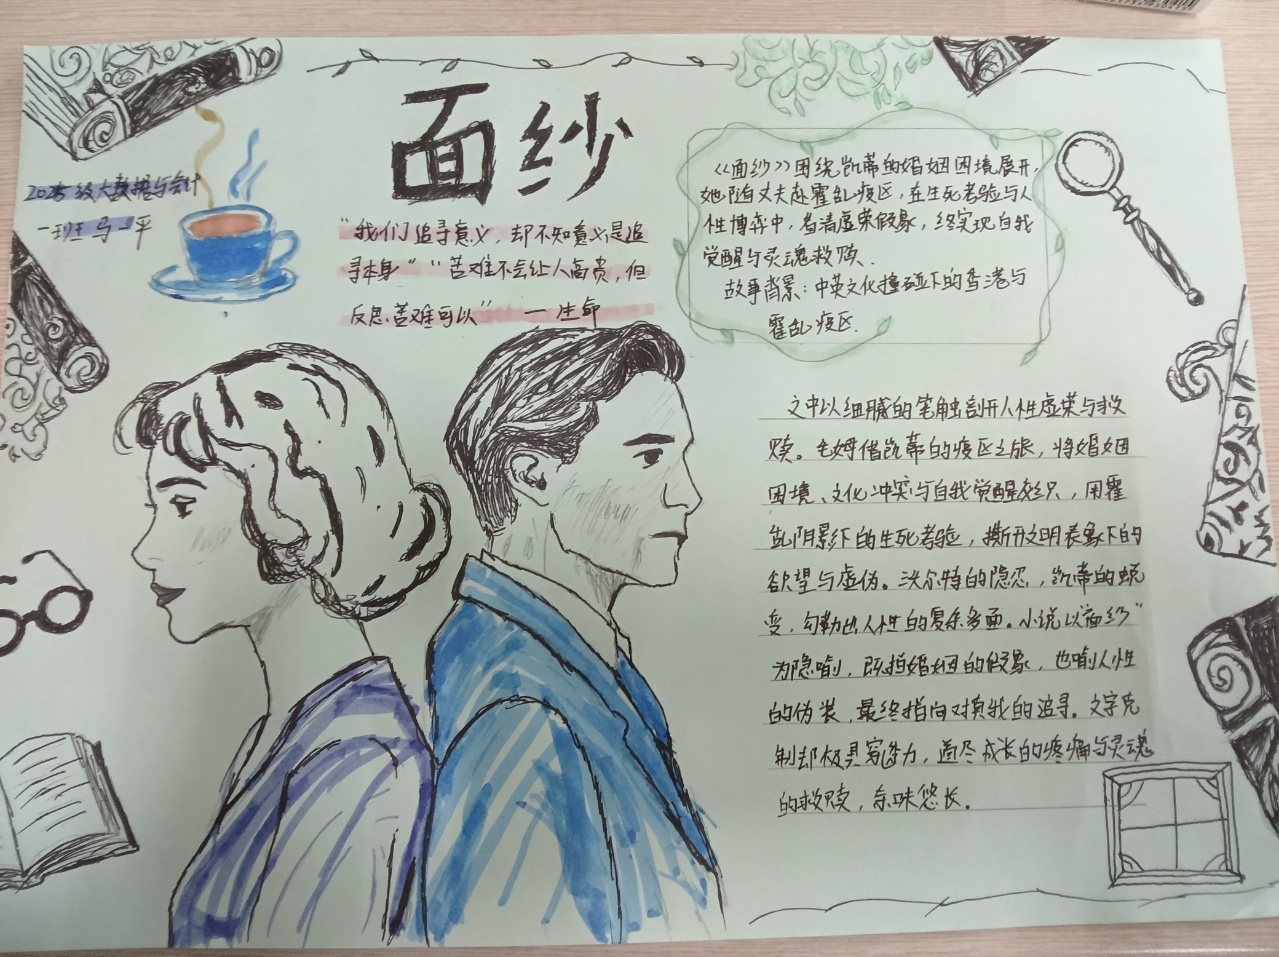 面纱
2025级大数据与会计
一班 马一平
“我们追寻意义，却不知意义是追
寻本身”“苦难不会让人高贵，但
反思苦难可以”——生命
《面纱》围绕凯蒂的婚姻困境展开，
她随丈夫赴霍乱疫区，在生死考验与人
性博弈中，看清虚荣假象，终实现自我
觉醒与灵魂救赎．
故事背景：中英文化撞碰下的香港与
霍乱疫区．
文中以细腻的笔触剖开人性虚荣与救
赎。毛姆借凯蒂的疫区之旅，将婚姻
困境、文化冲突与自我觉醒交织，用霍
乱阴影下的生死考验，撕开文明表象下的
欲望与虚伪。沃尔特的隐忍，凯蒂的蜕
变，勾勒出人性的复杂多面。小说以“面纱”
为隐喻，既指婚姻的假象，也喻人性
的伪装，最终指向对真我的追寻。文字克
制却极具穿透力，道尽成长的疼痛与灵魂
的救赎，余味悠长。